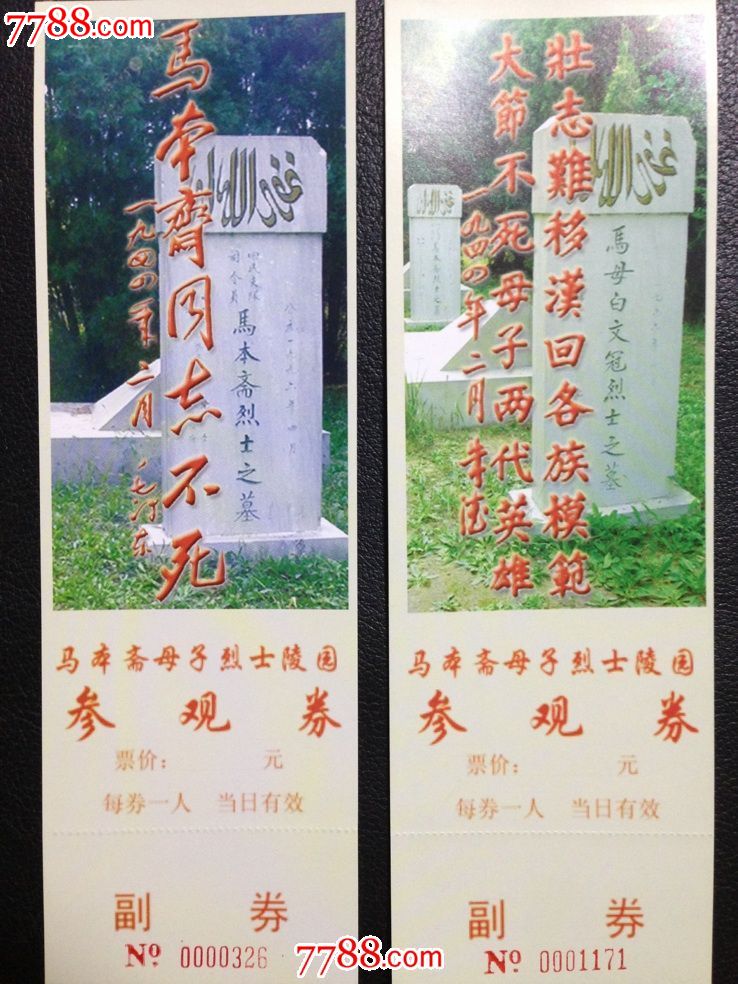 7788.com
7788.com
馬本齋同志不死
一九四四年二月
毛泽东
回民支隊
司令員
馬本斋烈士之墓
马本斋母子烈士陵园
参观券
票价： 元
每券一人 当日有效
副券
№ 0000326
壯志難移漢回各族模範
大節不死母子两代英雄
一九四四年二月 朱德
馬母白文冠烈士之墓
马本斋母子烈士陵园
参观券
票价： 元
每券一人 当日有效
副券
№ 0001171
7788.com
7788.com